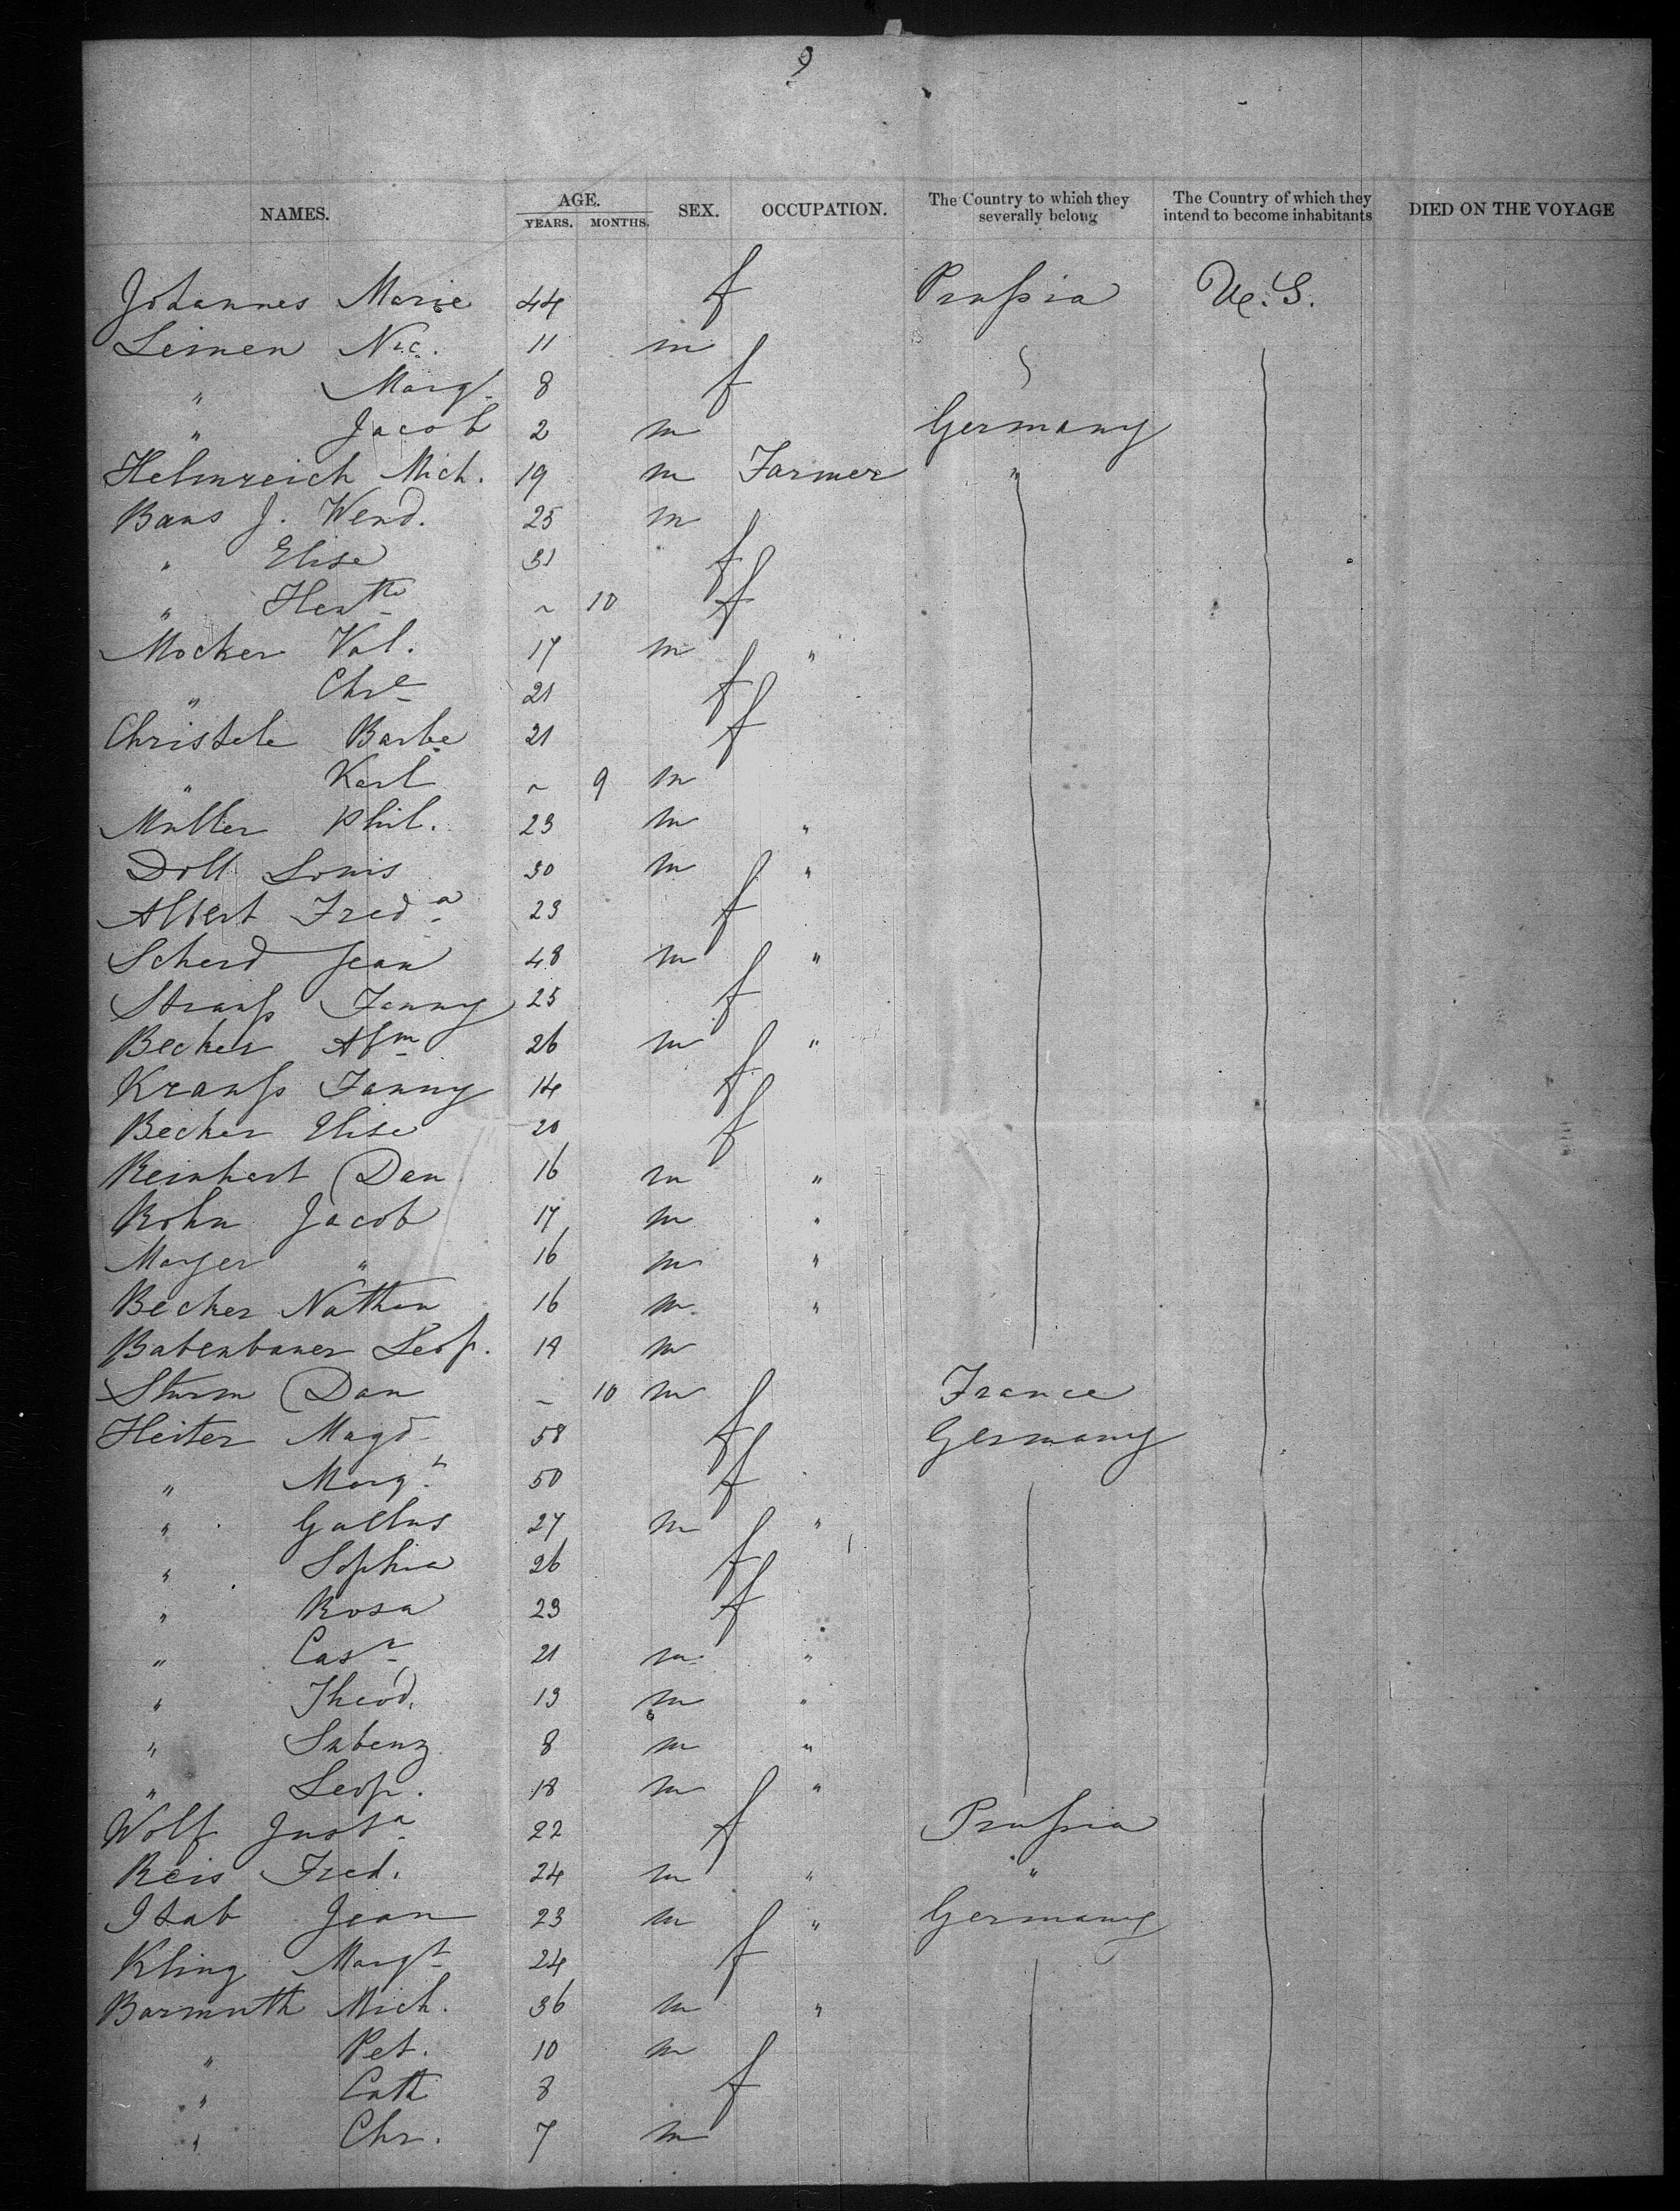 9
NAMES. AGE. YEARS. MONTHS. SEX. OCCUPATION. The Country to which they severally belong The Country of which they intend to become inhabitants DIED ON THE VOYAGE
Johannes Marie 44 f Prussia U.S.
Leinen Nic. 11 m
" Margt 8 f
" Jacob 2 m Germany
Helmreich Mich. 19 m Farmer "
Bans J. Wend. 25 m
" Elise 31 f
" Hentte ~ 10 f
Mocker Val. 17 m "
" Chre 21 f
Christele Barbe 21 f
" Karl ~ 9 m
Muller Phil. 23 m "
Doll Louis 30 m "
Albert Freda 23 f
Scherd Jean 48 m "
Strauss Fanny 25 f
Becker Abm 26 m "
Krauss Fanny 14 f
Becker Elise 20 f
Reinhart Dan 16 m "
Rohn Jacob 17 m "
Mayer " 16 m "
Becker Nathan 16 m "
Babenbaner Leop. 14 m
Sturm Dan ~ 10 m France
Heiter Magd 58 f Germany
" Margt 50 f
" Gallus 27 m "
" Sophia 26 f
" Rosa 23 f
" Casr 21 m "
" Theod. 13 m "
" Sabenz 8 m "
" Leop. 18 m "
Wolf Justa 22 f Prussia
Reis Fred. 24 m " "
Istab Jean 23 m " Germany
Kling Margt 24 f
Barmuth Mich. 36 m "
" Pet. 10 m
" Cath 8 f
" Chr. 7 m